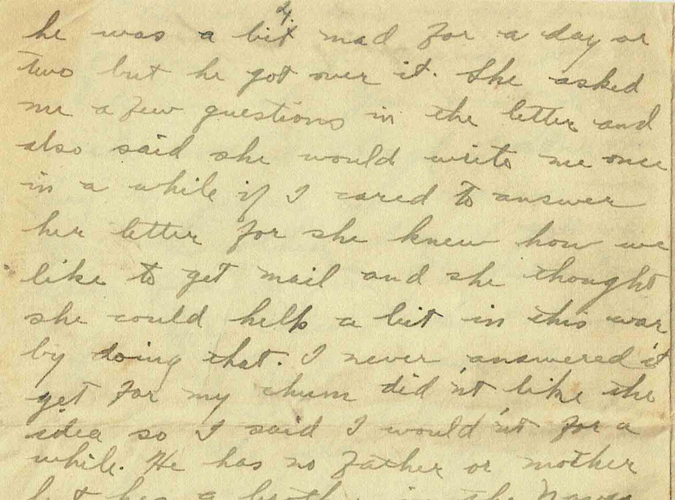 4.
he was a bit mad for a day or
two but he got over it. She asked
me a few questions in the letter and
also said she would write me once
in a while if I cared to answer
her letter for she knew how we
like to get mail and she thought
she could help a bit in this war
by doing that. I never answered it
yet for my chum did'nt like the
idea so I said I would'nt for a
while. He has no Father or mother
but has a brother in the Navy